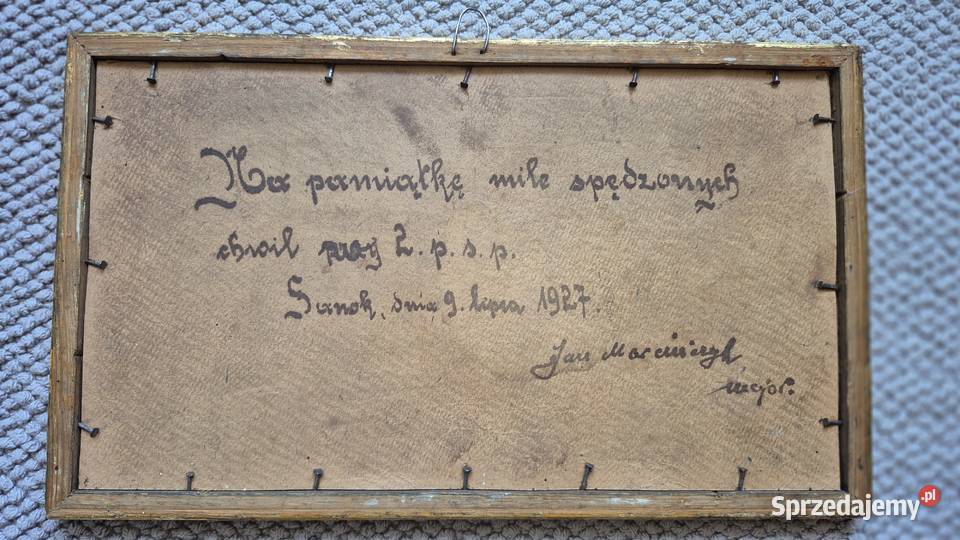 Na pamiątkę mile spędzonych
chwil przy 2. p. s. p.
Sanok, dnia 9. lipca 1927.
Jan
major.
Sprzedajemy.pl